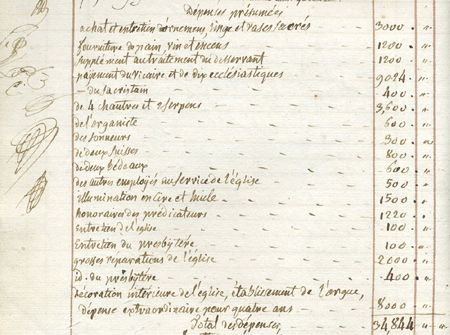 Dépenses présumées
achat et entretien d'ornemens, linge et vases sacrés 3000 "
fourniture de pain, vin et encens 1200 "
supplément au traitement du desservant 1200 "
payement du vicaire et de dix ecclésiastiques 9024 "
— du sacristain 400 "
de 4 chantres et 2 serpens 3,600 "
de l'organiste 600 "
des sonneurs 300 "
de deux suisses 800 "
de deux bedeaux 600 "
des autres employés au service de l'église 500 "
illumination en cire et huile 1500 "
honoraires des prédicateurs 1220 "
Entretien de l'église 100 "
Entretien du presbytère 100 "
grosses réparations de l'église 2000 "
id. du presbytère 400 "
Décoration intérieure de l'église, établissement de l'orgue,
dépense extraordinaire pour quatre ans 8000 "
Total des dépenses 34,844 "